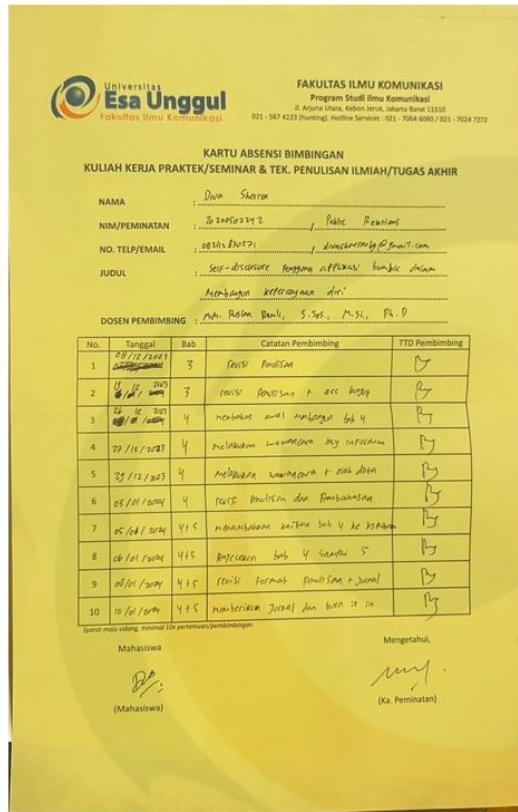 Universitas
Esa Unggul
Fakultas Ilmu Komunikasi
FAKULTAS ILMU KOMUNIKASI
Program Studi Ilmu Komunikasi
Jl. Arjuna Utara, Kebon Jeruk, Jakarta Barat 11510
021 - 567 4223 (hunting). Hotline Services : 021 - 7064 6060 / 021 - 7024 7272
KARTU ABSENSI BIMBINGAN
KULIAH KERJA PRAKTEK/SEMINAR & TEK. PENULISAN ILMIAH/TUGAS AKHIR
NAMA : Diva Sherren
NIM/PEMINATAN : , Public Relations
NO. TELP/EMAIL :
JUDUL : Self-disclosure pengguna aplikasi bumble dalam
Membangun kepercayaan diri
DOSEN PEMBIMBING : Ruslan Ramli, S.Sos., M.Si., Ph.D
No. Tanggal Bab Catatan Pembimbing TTD Pembimbing
1 08/12/2023 3 revisi Penulisan
2 2023 3 revisi Penulisan + acc
3 2023 4 membahas awal bab 4
4 27/12/2023 4 melakukan wawancara key informan
5 29/12/2023 4 Melakukan wawancara + olah data
6 03/01/2024 4 revisi Penulisan dan Pembahasan
7 05/01/2024 4+5 bab 4 ke
8 06/01/2024 4+5 bab 4 sampai 5
9 08/01/2024 4+5 revisi format Penulisan + Jurnal
10 10/01/2024 4+5 Memberikan Jurnal dan turn it in
Syarat maju sidang, minimal 10x pertemuan/pembimbingan
Mahasiswa Mengetahui,
(Mahasiswa) (Ka. Peminatan)